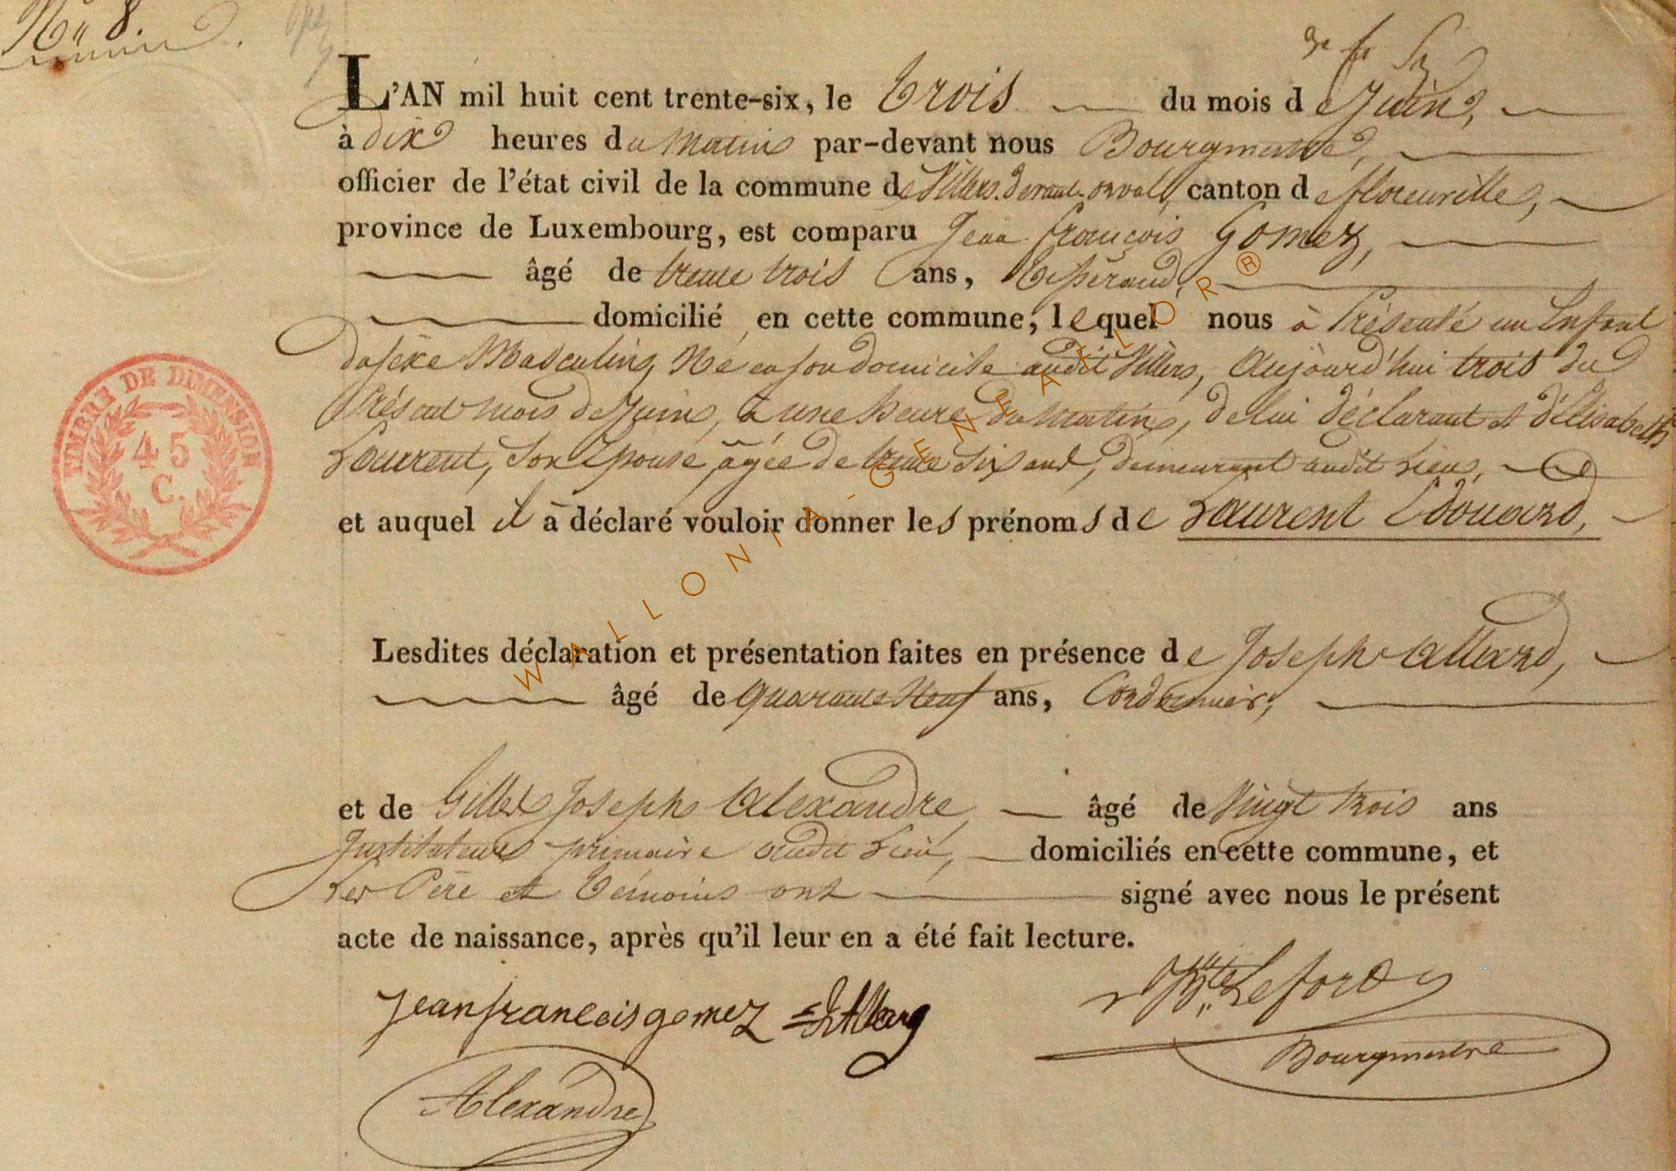 N° 8.
L'AN mil huit cent trente-six, le trois du mois de Juin,
à dix heures du Matin par-devant nous Bourgmestre,
officier de l'état civil de la commune de Villers-devant-orval, canton de florenville,
province de Luxembourg, est comparu Jean françois Gomez,
âgé de trente trois ans,
domicilié en cette commune, lequel nous à Présenté un Enfant
du sexe Masculin, Né en son domicile audit Villers, Aujourd'hui trois du
Présent mois de Juin, à une heure du matin, de lui déclarant et d'Elisabeth
Laurent, son épouse, agée de trente six ans, demeurant audit Lieu,
et auquel il à déclaré vouloir donner les prénoms de Laurent Edouard,
Lesdites déclaration et présentation faites en présence de Joseph Allard,
âgé de quarante Neuf ans, Cordonnier,
et de Gilles Joseph Alexandre, âgé de Vingt trois ans
Instituteur primaire audit Lieu, domiciliés en cette commune, et
Les Père et Témoins ont signé avec nous le présent
acte de naissance, après qu'il leur en a été fait lecture.
Jean francois gomez Allard Lefort
Bourgmestre
Alexandre
TIMBRE DE DIMENSION
45
C.
WALLONIA-GENEAFLOR®